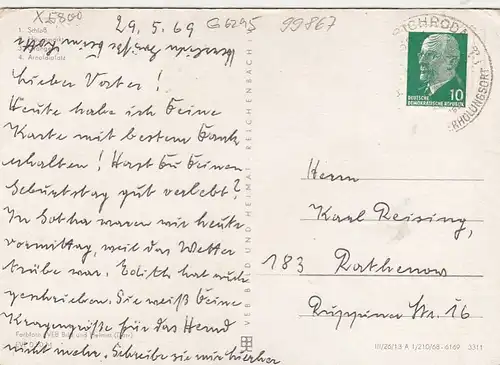 X 5800
29. 5. 69
G 6295
99867
1. Schloß
4. Arnoldiplatz
Lieber Vater!
Heute habe ich Deine
Karte mit bestem Dank
erhalten! Hast Du Deinen
Geburtstag gut verlebt?
In Gotha waren wir heute
vormittag, weil das Wetter
trübe war. Edith hat auch
geschrieben. Sie weiß Deine
Kragengröße für das Hemd
nicht mehr. Schreibe sie mir hierher
VEB BILD UND HEIMAT REICHENBACH
DEUTSCHE
DEMOKRATISCHE REPUBLIK
10
ERHOLUNGSORT
Herrn
Karl Reising,
183 Rathenow
Ruppiner Str. 16
III/26/13 A 1/210/68- 6169 0311